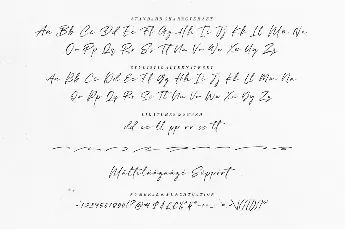 STANDARD CHARACTERSET
Aa Bb Cc Dd Ee Ff Gg Hh Ii Jj Kk Ll Mm Nn
Oo Pp Qq Rr Ss Tt Uu Vv Ww Xx Yy Zz
STYLISTIC ALTERNATIVES
Aa Bb Cc Dd Ee Ff Gg Hh Ii Jj Kk Ll Mm Nn
Oo Pp Qq Rr Ss Tt Uu Vv Ww Xx Yy Zz
dd ee ll pp rr ss tt
Multilanguage Support
NUMERALS & PUNCTUATION